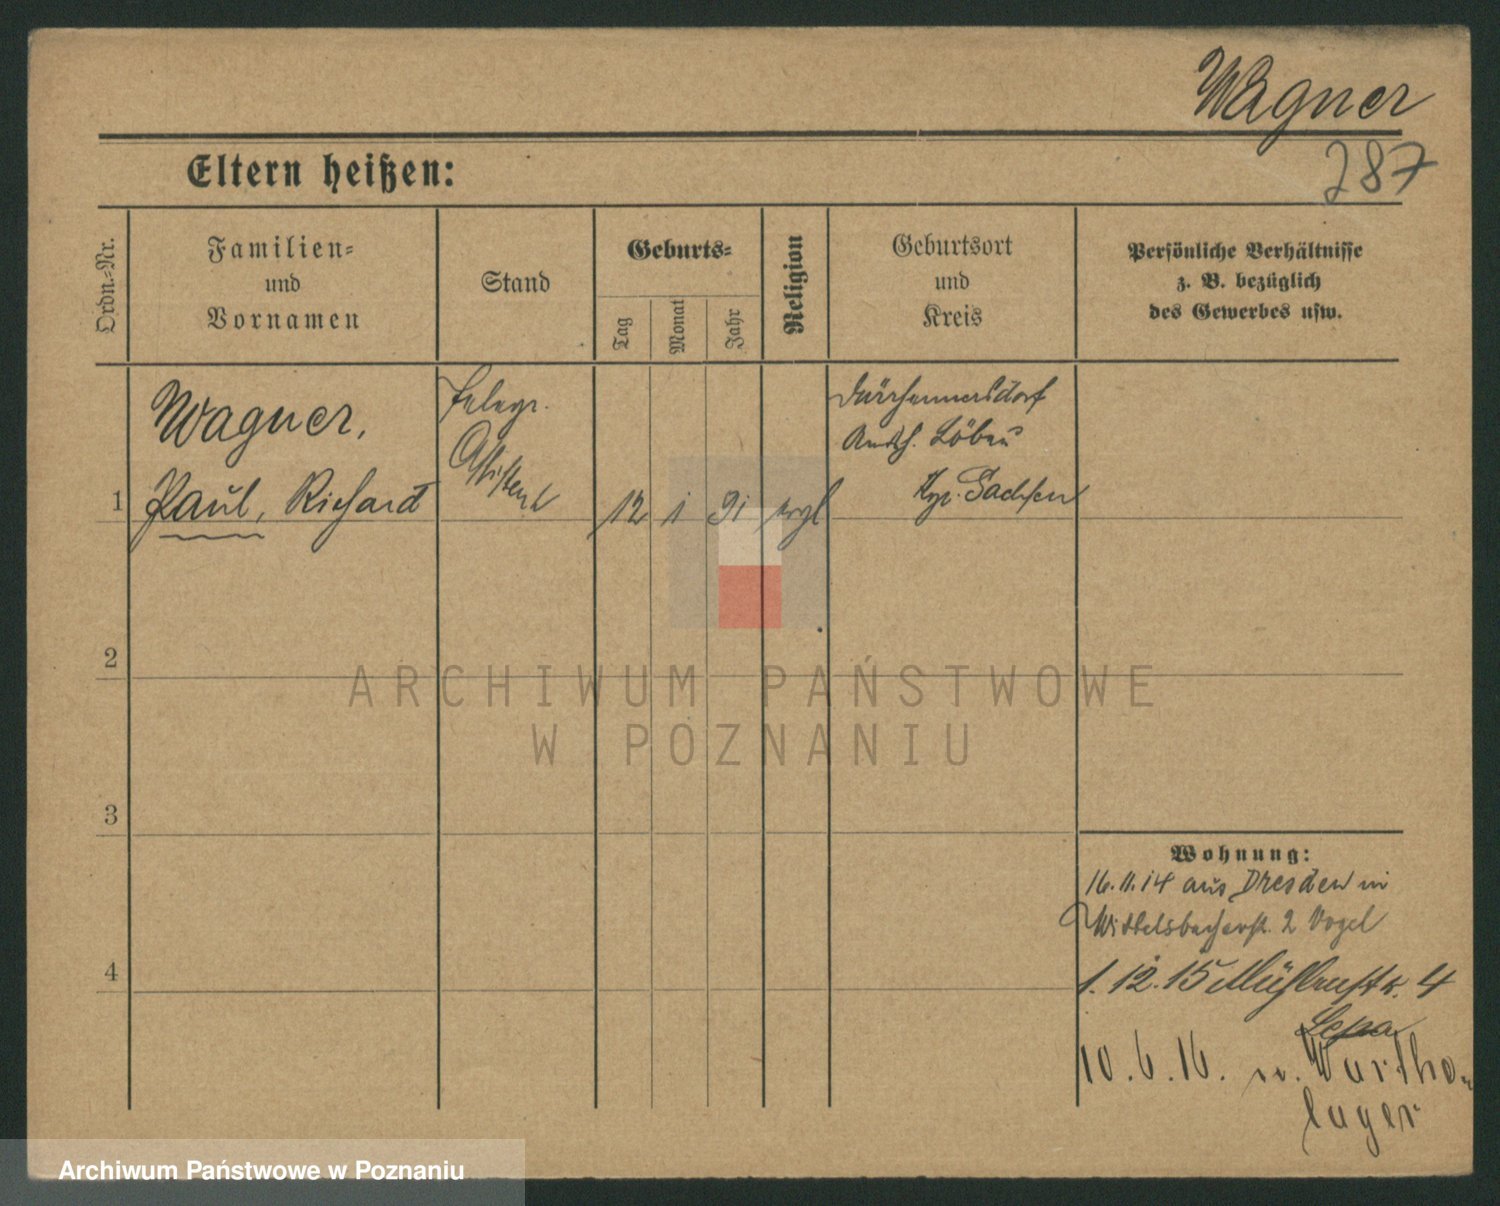 Wagner
287
Eltern heißen:
Ordn.=Nr.
Familien=
und
Vornamen
Stand
Geburts=
Tag
Monat
Jahr
Religion
Geburtsort
und
Kreis
Persönliche Verhältnisse
z. B. bezüglich
des Gewerbes usw.
Wagner,
Paul, Richard
Telegr.
Assistent
1
12
1
91
evgl
Dürrhennersdorf
Amtsh. Löbau
Kgr. Sachsen
2
3
4
Wohnung:
16.11.14 aus Dresden in
Wittelsbacherstr. 2 Vogel
1.12.15 Mühlenstr. 4
Sepa
10.6.16. n. Wartha-
lager
ARCHIWUM PAŃSTWOWE
W POZNANIU
Archiwum Państwowe w Poznaniu